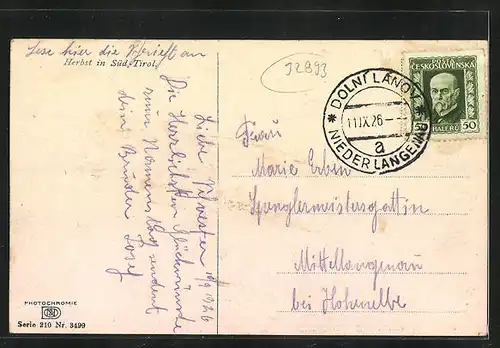 Lese hier die Schrift an
Herbst in Süd-Tirol.
32893
Liebe Schwester 10/9 1926
Die Herzlichsten Glückwünsche
zum Namenstag sendet
dein Bruder Josef
PHOTOCHROMIE
Serie 210 Nr. 3499
DOLNÍ LÁNOV
11.IX.26-
a
NIEDERLANGENAU
POŠTA
ČESKOSLOVENSKÁ
HALÉŘŮ 50
Frau
Marie Erben
Spenglermeistersgattin
Mittellangenau
bei Hohenelbe